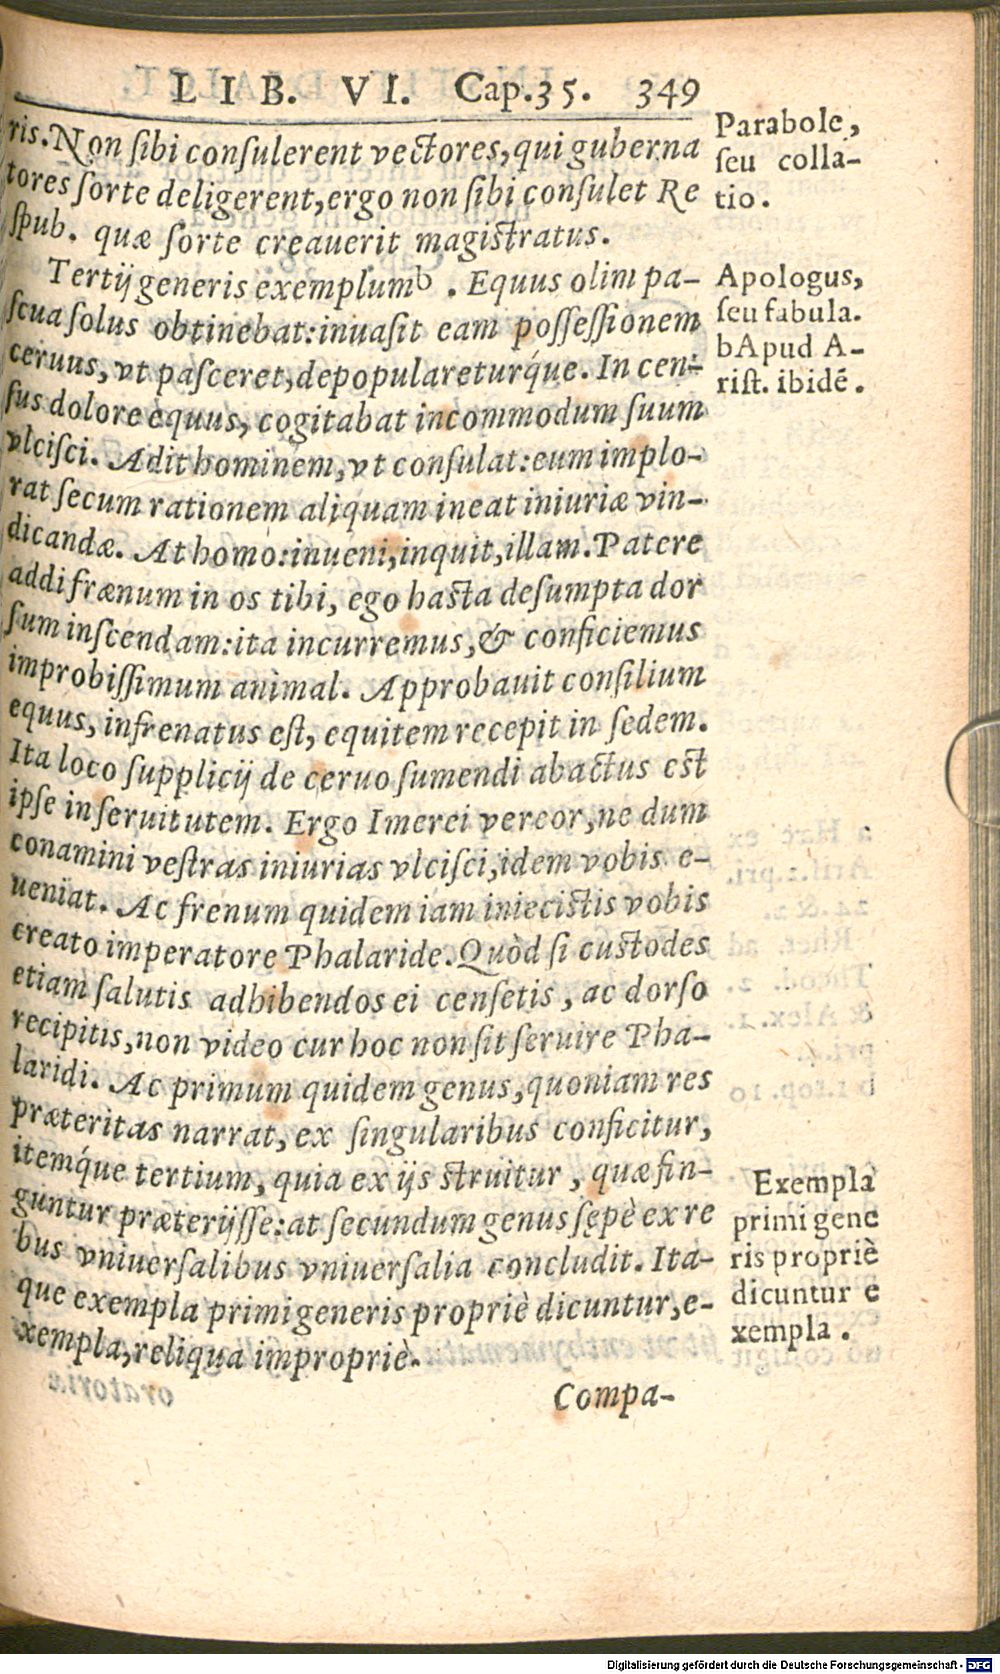 LIB. VI. Cap.35. 349
ris. Non sibi consulerent vectores, qui guberna
tores sorte deligerent, ergo non sibi consulet Re
spub. quæ sorte creauerit magistratus.
Tertij generis exemplum b . Equus olim pa-
scua solus obtinebat: inuasit eam possessionem
ceruus, vt pasceret, depopulareturq́ue. In cen-
sus dolore equus, cogitabat incommodum suum
vlcisci. Adit hominem, vt consulat: eum implo-
rat secum rationem aliquam ineat iniuriæ vin-
dicandæ. At homo: inueni, inquit, illam. Patere
addi frænum in os tibi, ego hasta desumpta dor
sum inscendam: ita incurremus, & conficiemus
improbissimum animal. Approbauit consilium
equus, infrenatus est, equitem recepit in sedem.
Ita loco supplicij de ceruo sumendi abactus est
ipse in seruitutem. Ergo Imerei vereor, ne dum
conamini vestras iniurias vlcisci, idem vobis e-
ueniat. Ac frenum quidem iam iniecistis vobis
creato imperatore Phalaride. Quòd si custodes
etiam salutis adhibendos ei censetis, ac dorso
recipitis, non video cur hoc non sit seruire Pha-
laridi. Ac primum quidem genus, quoniam res
præteritas narrat, ex singularibus conficitur,
itemq́ue tertium, quia ex ijs struitur, quæ fin-
guntur præterijsse: at secundum genus sępè ex re
bus vniuersalibus vniuersalia concludit. Ita-
que exempla primi generis propriè dicuntur, e-
xempla, reliqua impropriè.
Compa-
Parabole,
seu colla-
tio.
Apologus,
seu fabula.
b Apud A-
rist. ibidē.
Exempla
primi gene
ris propriè
dicuntur e
xempla.
Digitalisierung gefördert durch die Deutsche Forschungsgemeinschaft - DFG